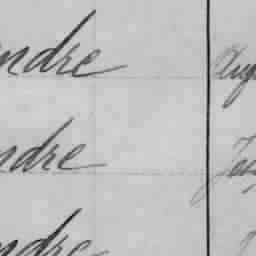 ndre Aug
ndre Jos
ndre